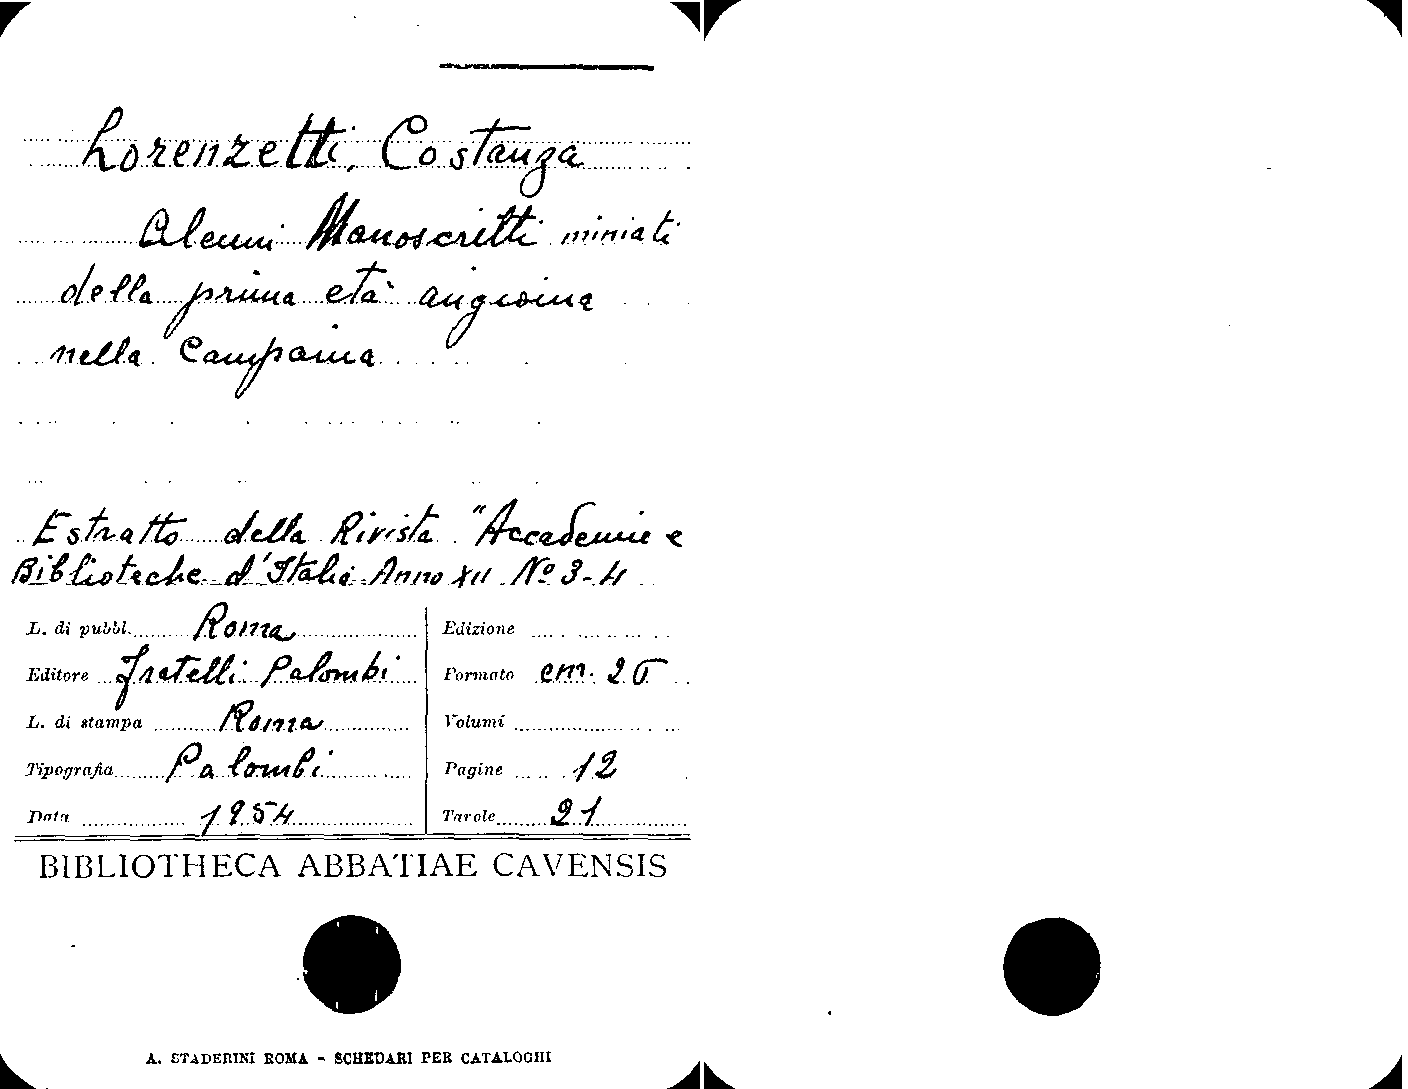 Lorenzetti, Costanza
Alcuni Manoscritti miniati
della prima età angioina
nella Campania
Estratto della Rivista "Accademie e
Biblioteche d'Italia Anno XII Nº 3-4
L. di pubbl. Roma
Editore fratelli Palombi
L. di stampa Roma
Tipografia Palombi
Data 1954
Edizione
Formato cm. 25
Volumi
Pagine 12
Tavole 21
BIBLIOTHECA ABBATIAE CAVENSIS
A. STADERINI ROMA - SCHEDARI PER CATALOGHI